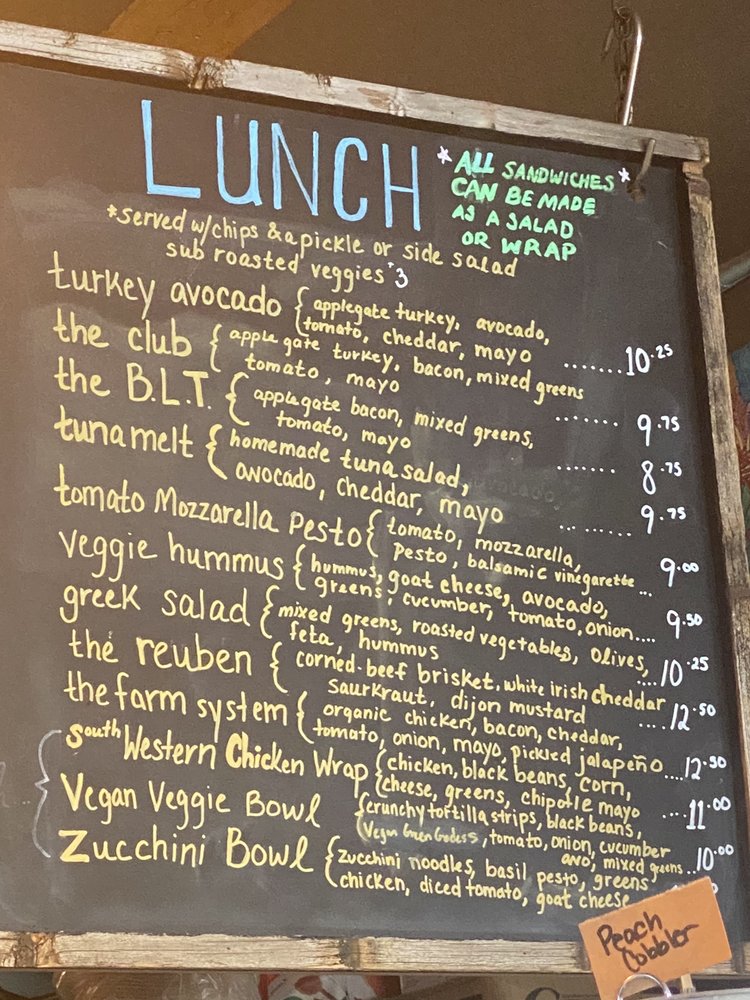 LUNCH
*ALL SANDWICHES*
CAN BE MADE
AS A SALAD
OR WRAP
*served w/chips & a pickle or side salad
sub roasted veggies 3
turkey avocado { applegate turkey, avocado,
tomato, cheddar, mayo ....... 10.25
the club { applegate turkey, bacon, mixed greens
tomato, mayo ........ 9.75
the B.L.T. { applegate bacon, mixed greens,
tomato, mayo ....... 8.75
tuna melt { homemade tuna salad,
avocado, cheddar, mayo ......... 9.75
tomato Mozzarella Pesto { tomato, mozzarella,
Pesto, balsamic vinegarette ... 9.00
veggie hummus { hummus, goat cheese, avocado,
greens, cucumber, tomato, onion.... 9.50
greek salad { mixed greens, roasted vegetables, olives,
feta, hummus ....10.25
the reuben { corned-beef brisket, white irish cheddar
saurkraut, dijon mustard ....12.50
the farm system { organic chicken, bacon, cheddar,
tomato, onion, mayo, pickled jalapeño....12.50
South Western Chicken Wrap { chicken, black beans, corn,
cheese, greens, chipotle mayo ....11.00
Vegan Veggie Bowl { crunchy tortilla strips, black beans,
Vegan Green Godess, tomato, onion, cucumber
avo, mixed greens ..10.00
Zucchini Bowl { zucchini noodles, basil pesto, greens
chicken, diced tomato, goat cheese
Peach
Cobbler